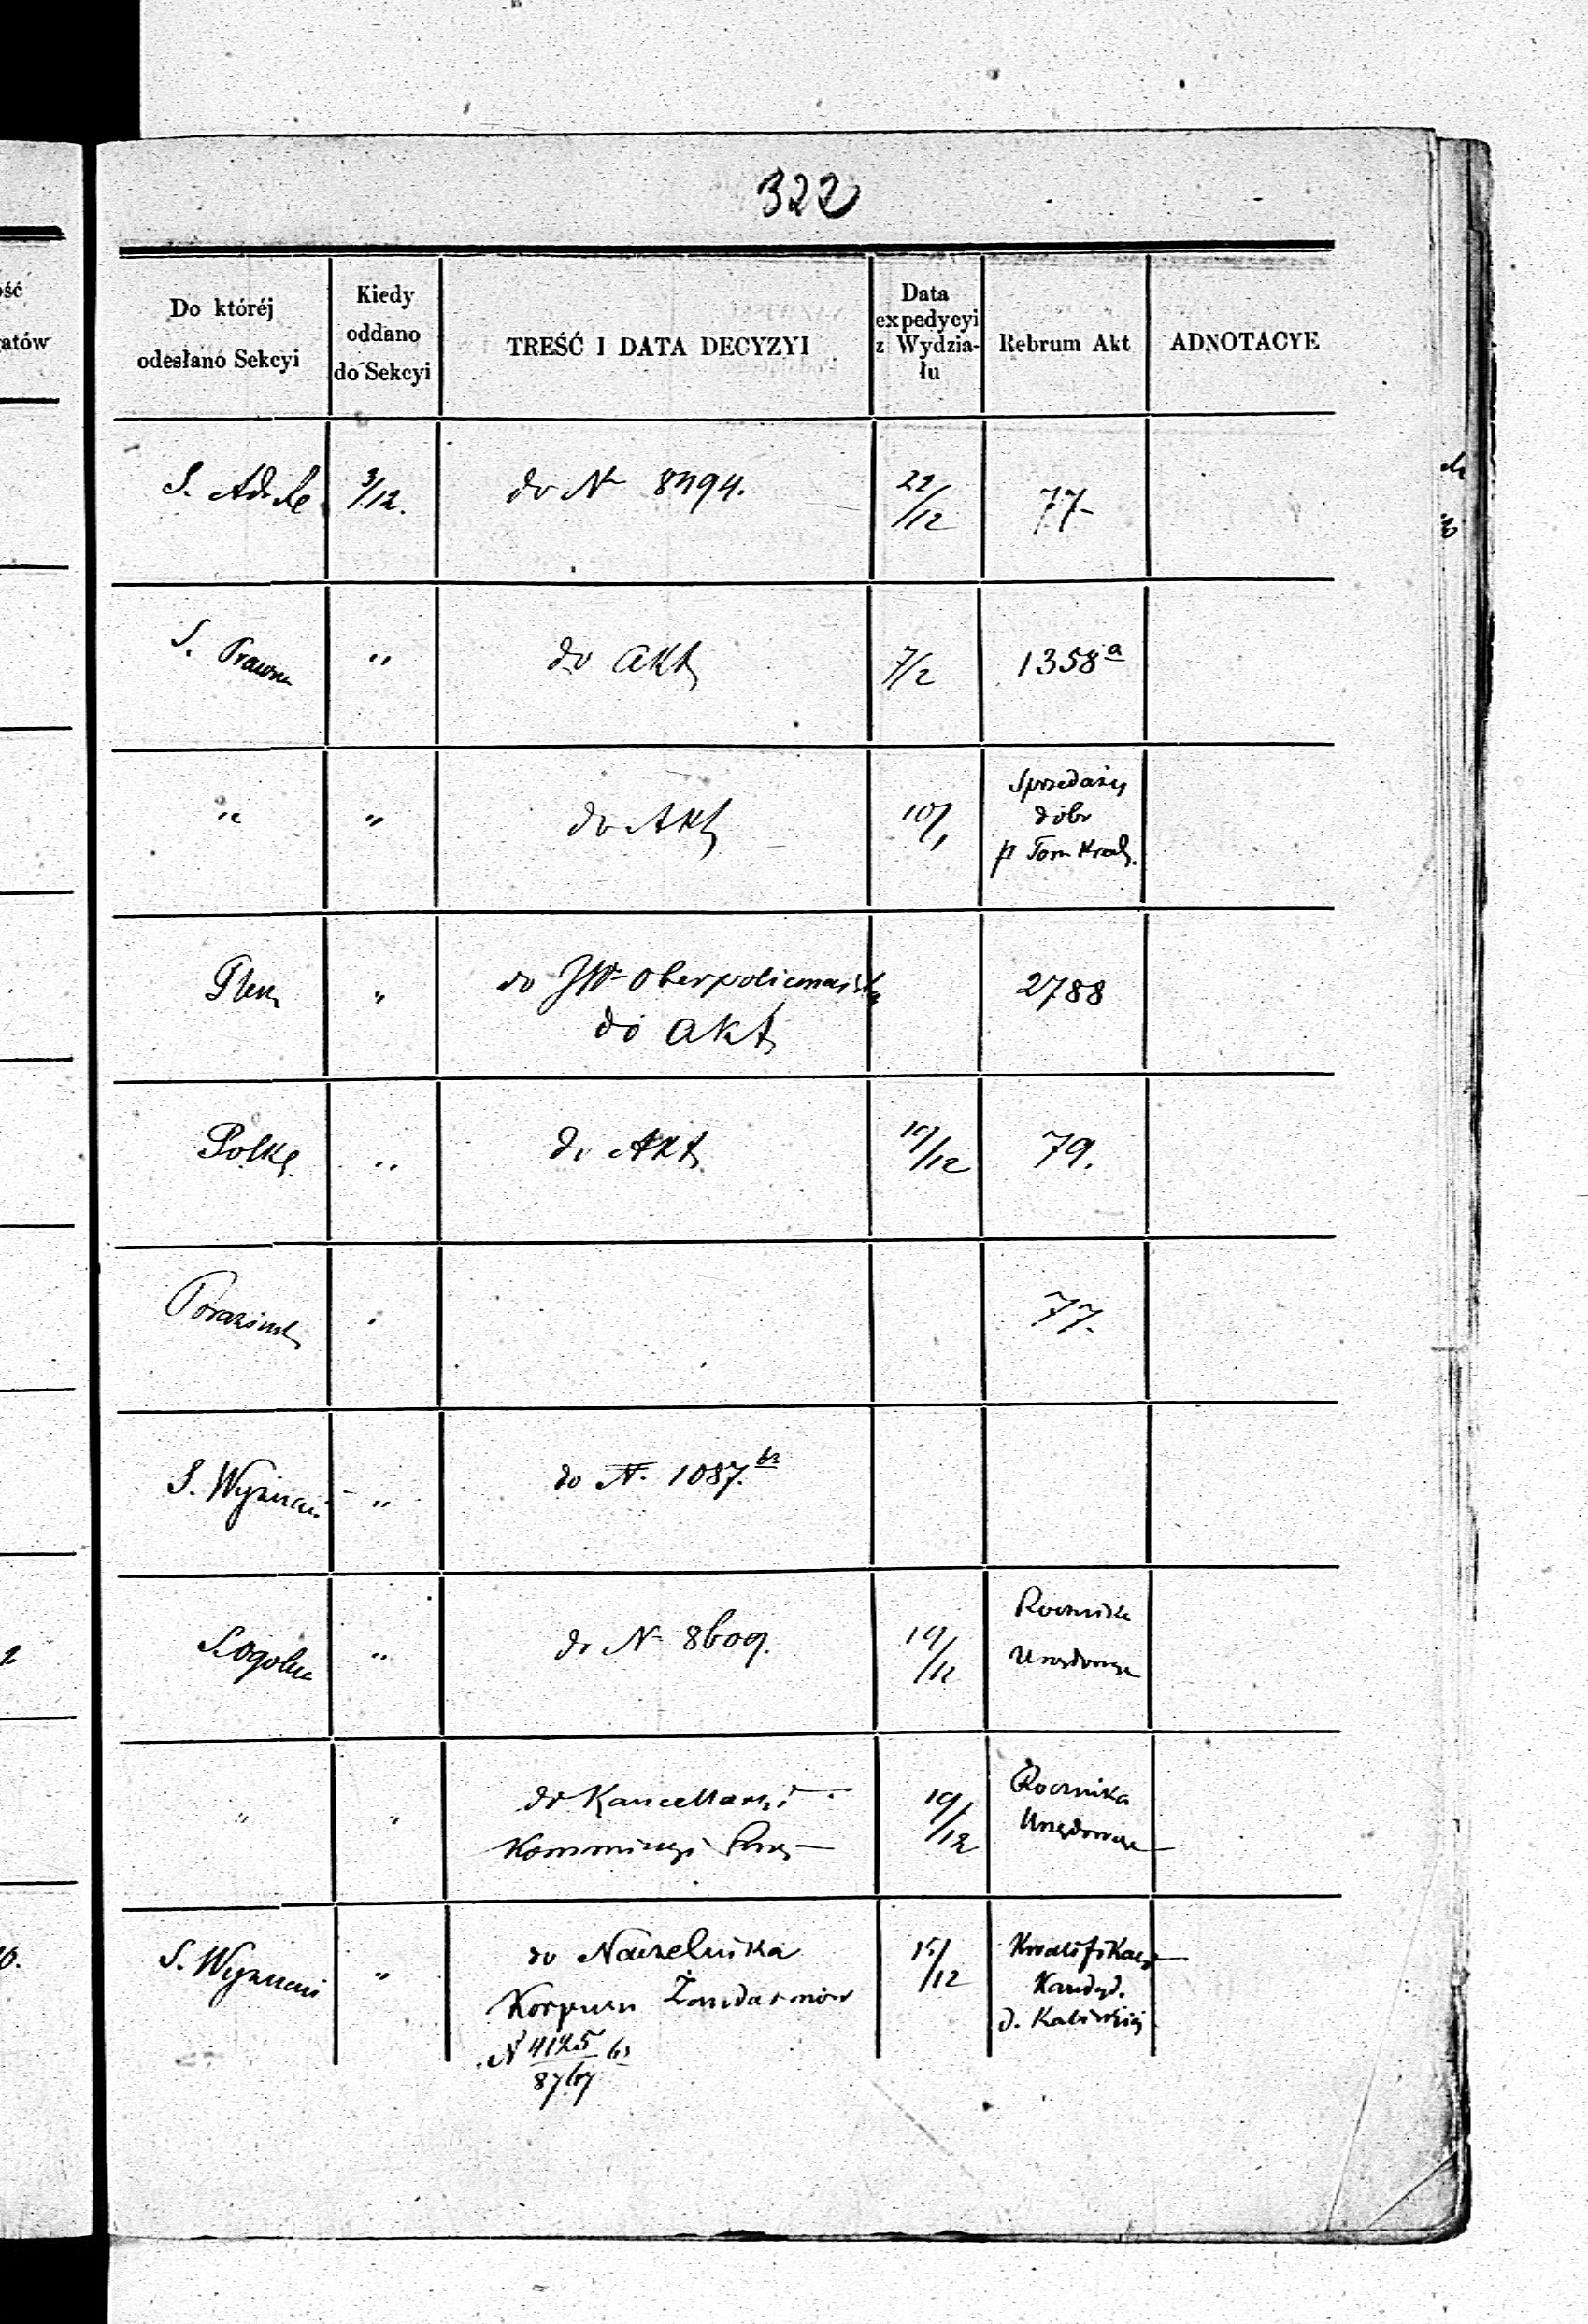 322
ość
atów
Do któréj
odesłano Sekcyi
Kiedy
oddano
do Sekcyi
TREŚĆ I DATA DECYZYI
Data
expedycyi
z Wydzia-
łu
Rebrum Akt
ADNOTACYE
S.
3/12.
do N 8494.
22/12
77-
S. Prawna
"
do Akt
7/2
1358a
"
"
do Akt
10/1
Sprzedaży
dóbr
p Tom Krak.
"
do JW Oberpolicmajstra
do Akt
2788
"
do Akt
19/12
79.
77.
S. Wyznań
"
do N. 1087.bs
S. Ogólna
"
do N 8609.
19/12
Rocznika
Urzędowego
"
"
do Kancellaryi
Kommissyi
19/12
Rocznika
Urzędowego
S. Wyznań
"
do Naczelnika
Korpusu Żandarmów
N 4125/8767 bs
15/12
Kwalifikacye
Kandyd.